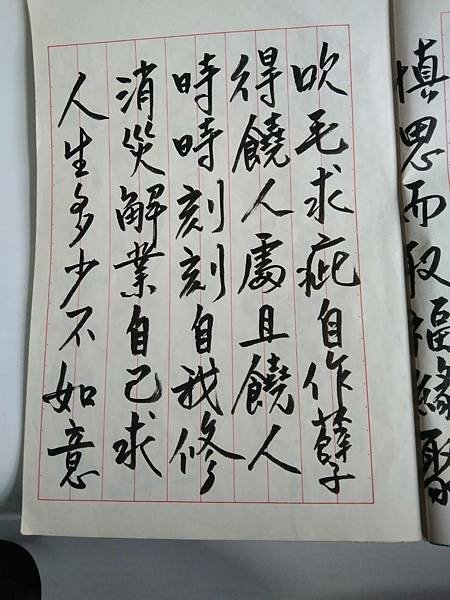 慎思而取福緣聚
吹毛求疵自作孽
得饒人處且饒人
時時刻刻自我修
消災解業自己求
人生多少不如意